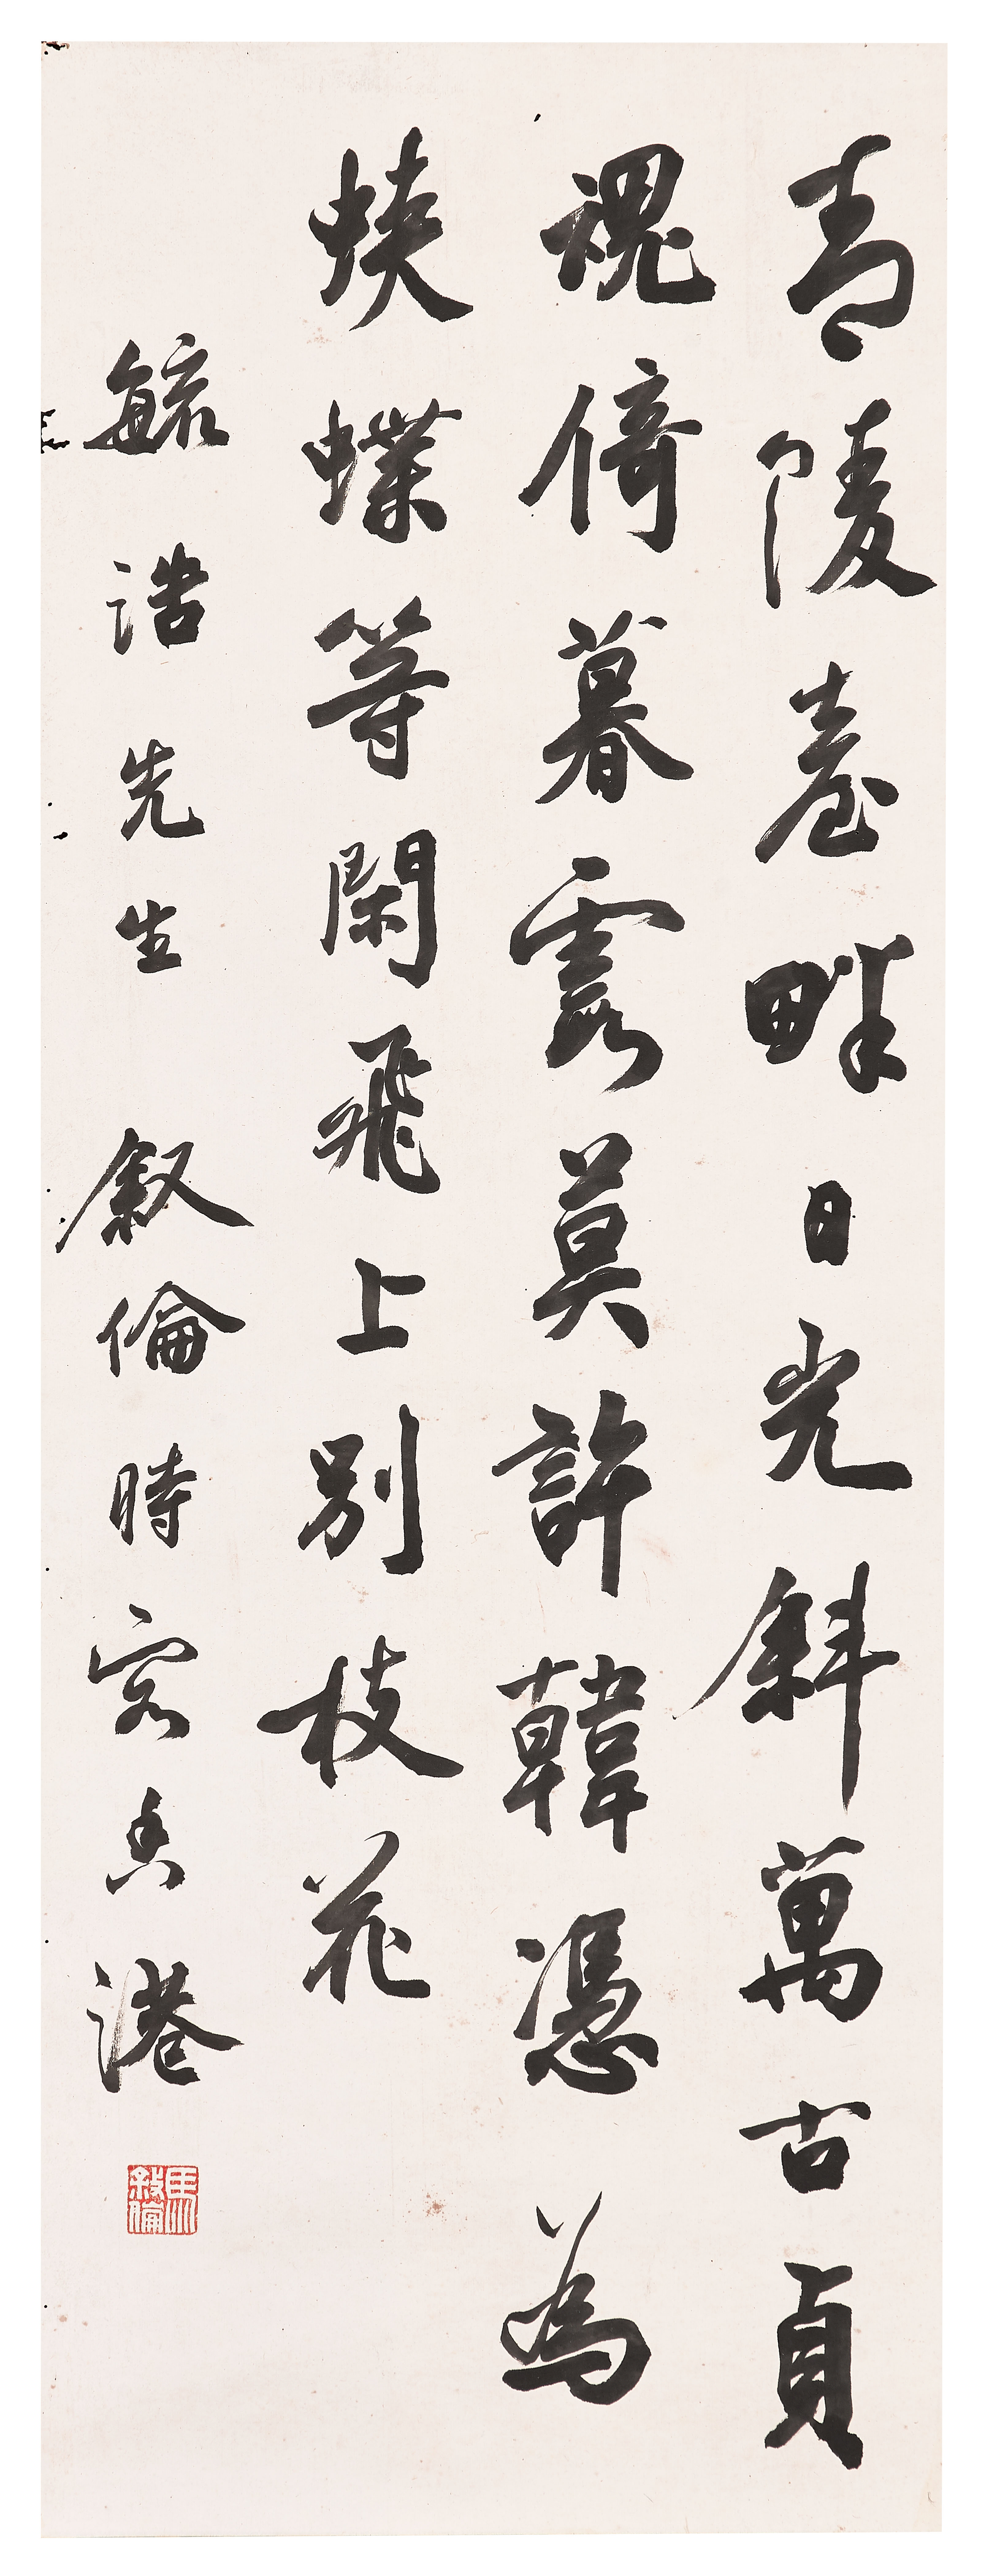 青陵臺畔日光斜萬古貞
魂倚暮霞莫許韓憑為
蛺蝶等閑飛上別枝花
毓誥先生 叙倫時客香港
馬叙倫